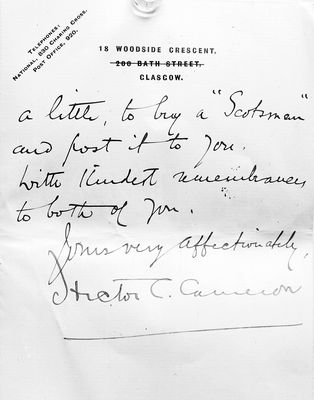 TELEPHONES:
NATIONAL, 830 CHARING CROSS.
POST OFFICE, 920.
18 WOODSIDE CRESCENT,
200 BATH STREET,
GLASGOW.
a little, to buy a "Scotsman"
and post it to you.
With kindest remembrances
to both of you.
Yours very affectionately,
Hector C. Cameron